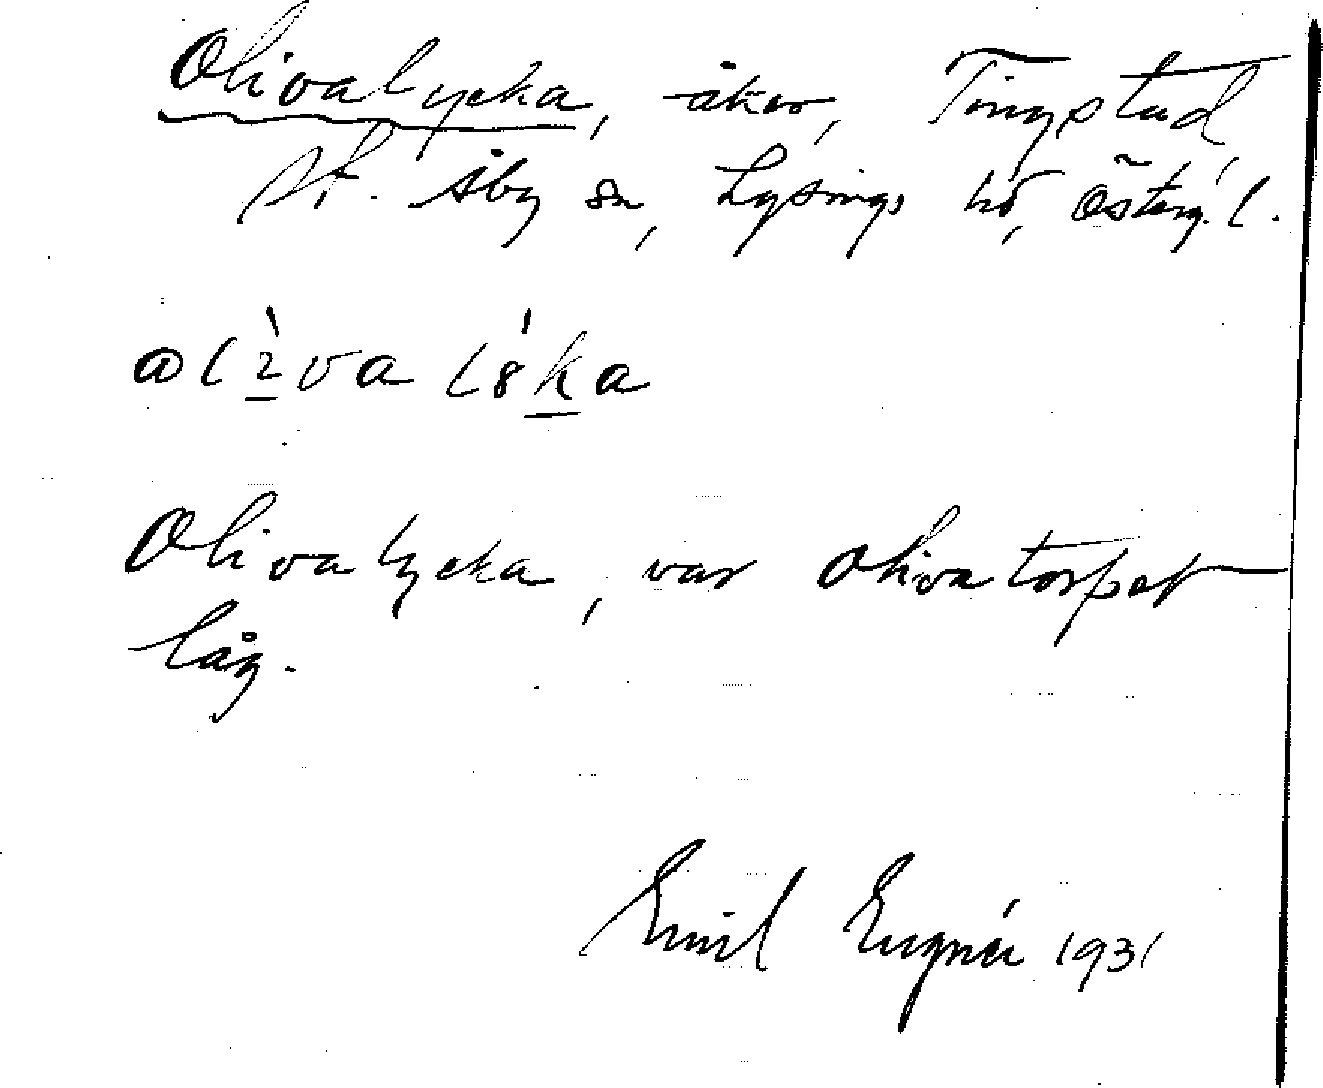 Olivalycka, åker, Tingstad
St. Åby sn, Lysings hd, Östergl.
olivalyka
Olivalycka, var Olivatorpet
låg.
Emil Engnér 1931